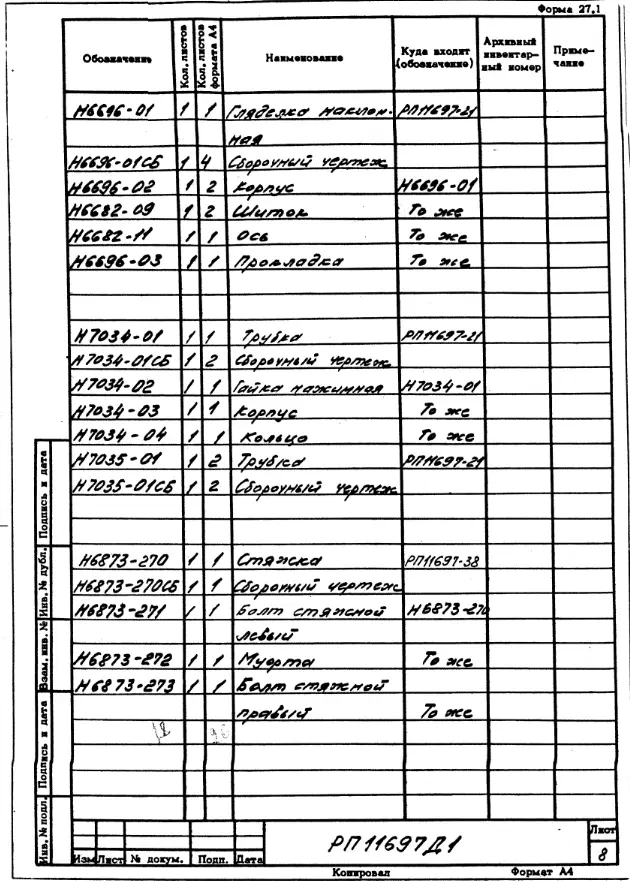 Форма 27,1
Обозначение Кол. листов Кол. листов формата А4 Наименование Куда входит (обозначение) Архивный инвентарный номер Примечание
Н6696-01 1 1 Гляделка наклон- РП11697-21
ная
Н6696-01СБ 1 4 Сборочный чертеж
Н6696-02 1 2 Корпус Н6696-01
Н6682-09 1 2 Шиток То же
Н6682-11 1 1 Ось То же
Н6696-03 1 1 Прокладка То же
Н7034-01 1 1 Трубка РП11697-21
Н7034-01СБ 1 2 Сборочный чертеж
Н7034-02 1 1 Гайка нажимная Н7034-01
Н7034-03 1 1 Корпус То же
Н7034-04 1 1 Кольцо То же
Н7035-01 1 2 Трубка РП11697-21
Н7035-01СБ 1 2 Сборочный чертеж
Н6873-270 1 1 Стяжка РП11697-38
Н6873-270СБ 1 1 Сборочный чертеж
Н6873-271 1 1 Болт стяжной Н6873-270
левый
Н6873-272 1 1 Муфта То же
Н6873-273 1 1 Болт стяжной
правый То же
Инв. № подл. Подпись и дата Взам. инв. № Инв. № дубл. Подпись и дата
Изм Лист № докум. Подп. Дата
РП11697Д1
Лист
8
Копировал Формат А4